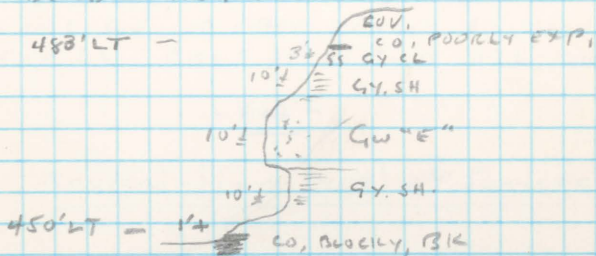 COV.
483' LT — CO, POORLY EXP.
3'± SS GY CL
10'± GY. SH
10'± GW "E"
10'± GY. SH.
450' LT — 1'+ CO, BLOCKY, BK